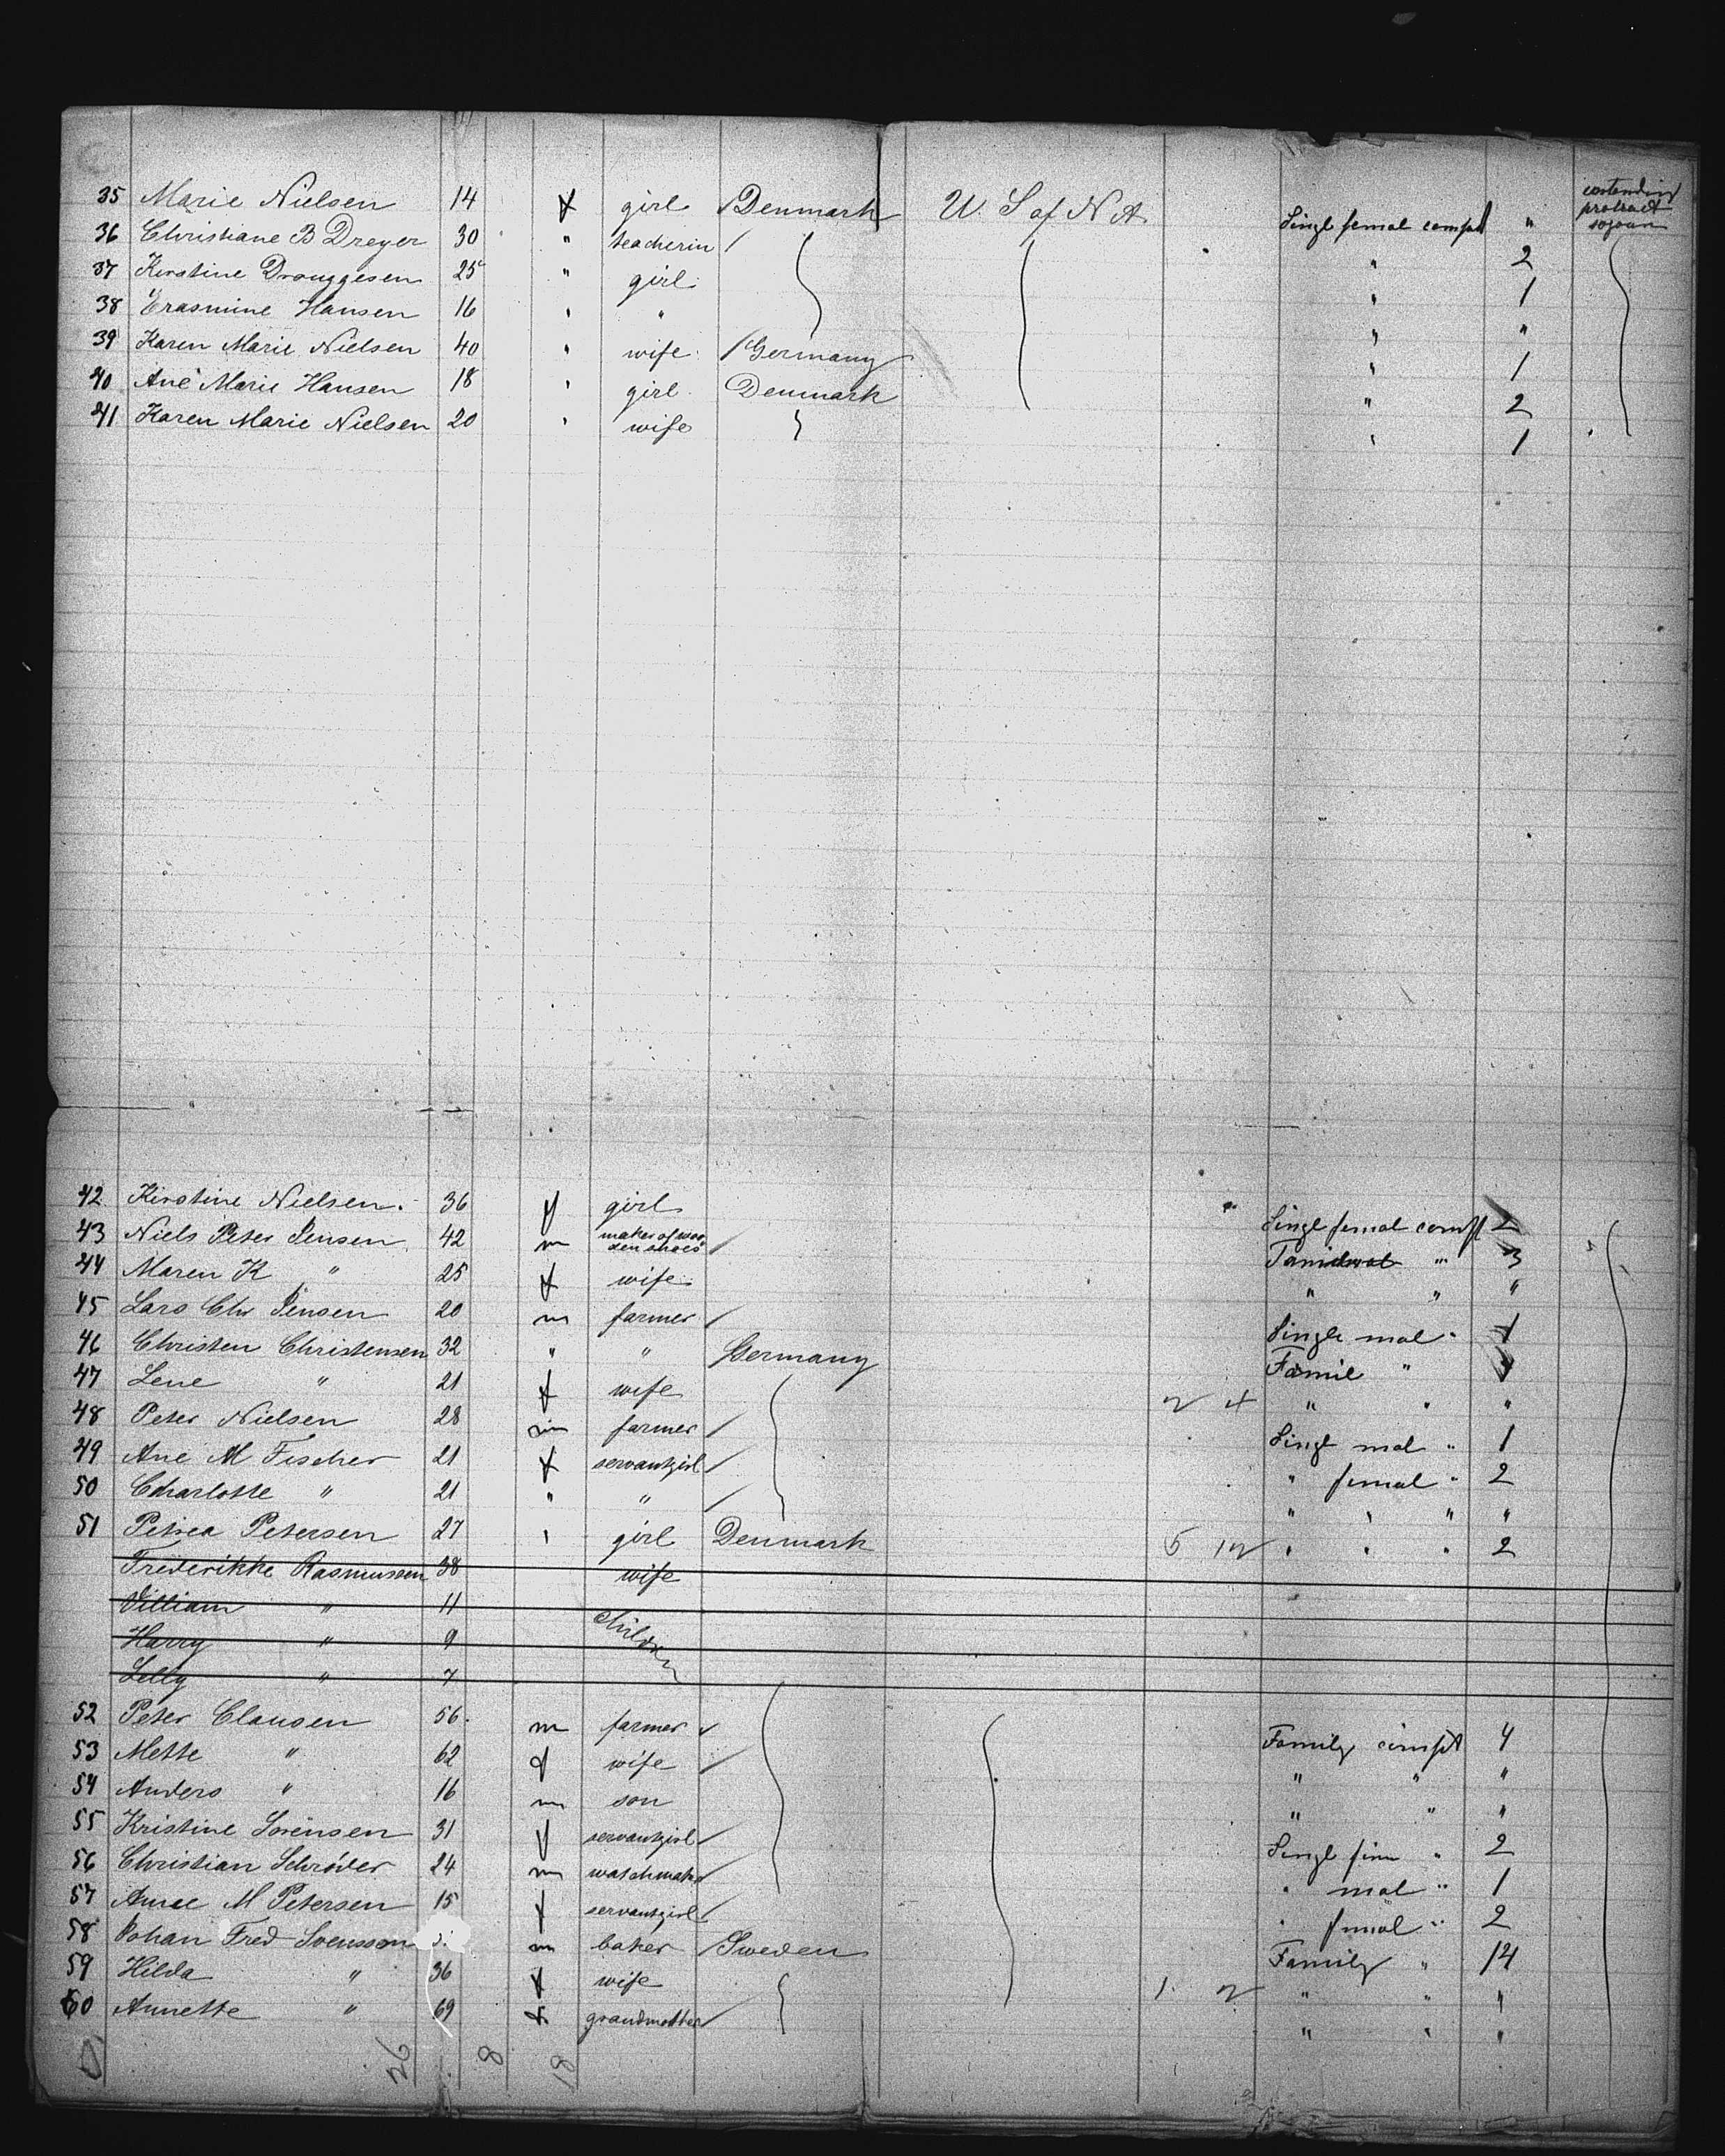 35 Marie Nielsen 14 f girl Denmark U. S of N A. Singl femal compt " protract
36 Christiane B Dreyer 30 " teacherin " 2
37 Kirstine Drouggesen 25 " girl " 1
38 Erasmine Hansen 16 " " " "
39 Karen Marie Nielsen 40 " wife Germany " 1
40 Ane Marie Hansen 18 " girl Denmark " 2
41 Karen Marie Nielsen 20 " wife " 1
42 Kirstine Nielsen 36 f girl Singl femal compt 2
43 Niels Peter Jensen 42 m maker of woo-
den shoes " 3
44 Maren K " 25 f wife " " "
45 Lars Chr Jensen 20 m farmer Single mal " 1
46 Christen Christensen 32 " " Germany Famil "
47 Lene " 21 f wife 2 4 " " "
48 Peter Nielsen 28 m farmer Singl mal " 1
49 Ane M Fischer 21 f servantgirl " femal " 2
50 Charlotte " 21 " " " " " "
51 Petrea Petersen 27 " girl Denmark 5 12 " " " 2
Frederikke Rasmussen 38 wife
William " 11
Harry " 9 children
Lilly " 7
52 Peter Clausen 56 m farmer Family compt 4
53 Mette " 62 f wife " " "
54 Anders " 16 m son " " "
55 Kristine Sörensen 31 f servantgirl Singl fem " 2
56 Christian Schröder 24 m watchmaker " mal " 1
57 Anne M Petersen 15 f servantgirl " femal " 2
58 Johan Fred Svensson m baker Sweden Family " 14
59 Hilda " 36 f wife 1 2 " " "
60 Annette " 69 f grandmother " " "
26 8 18